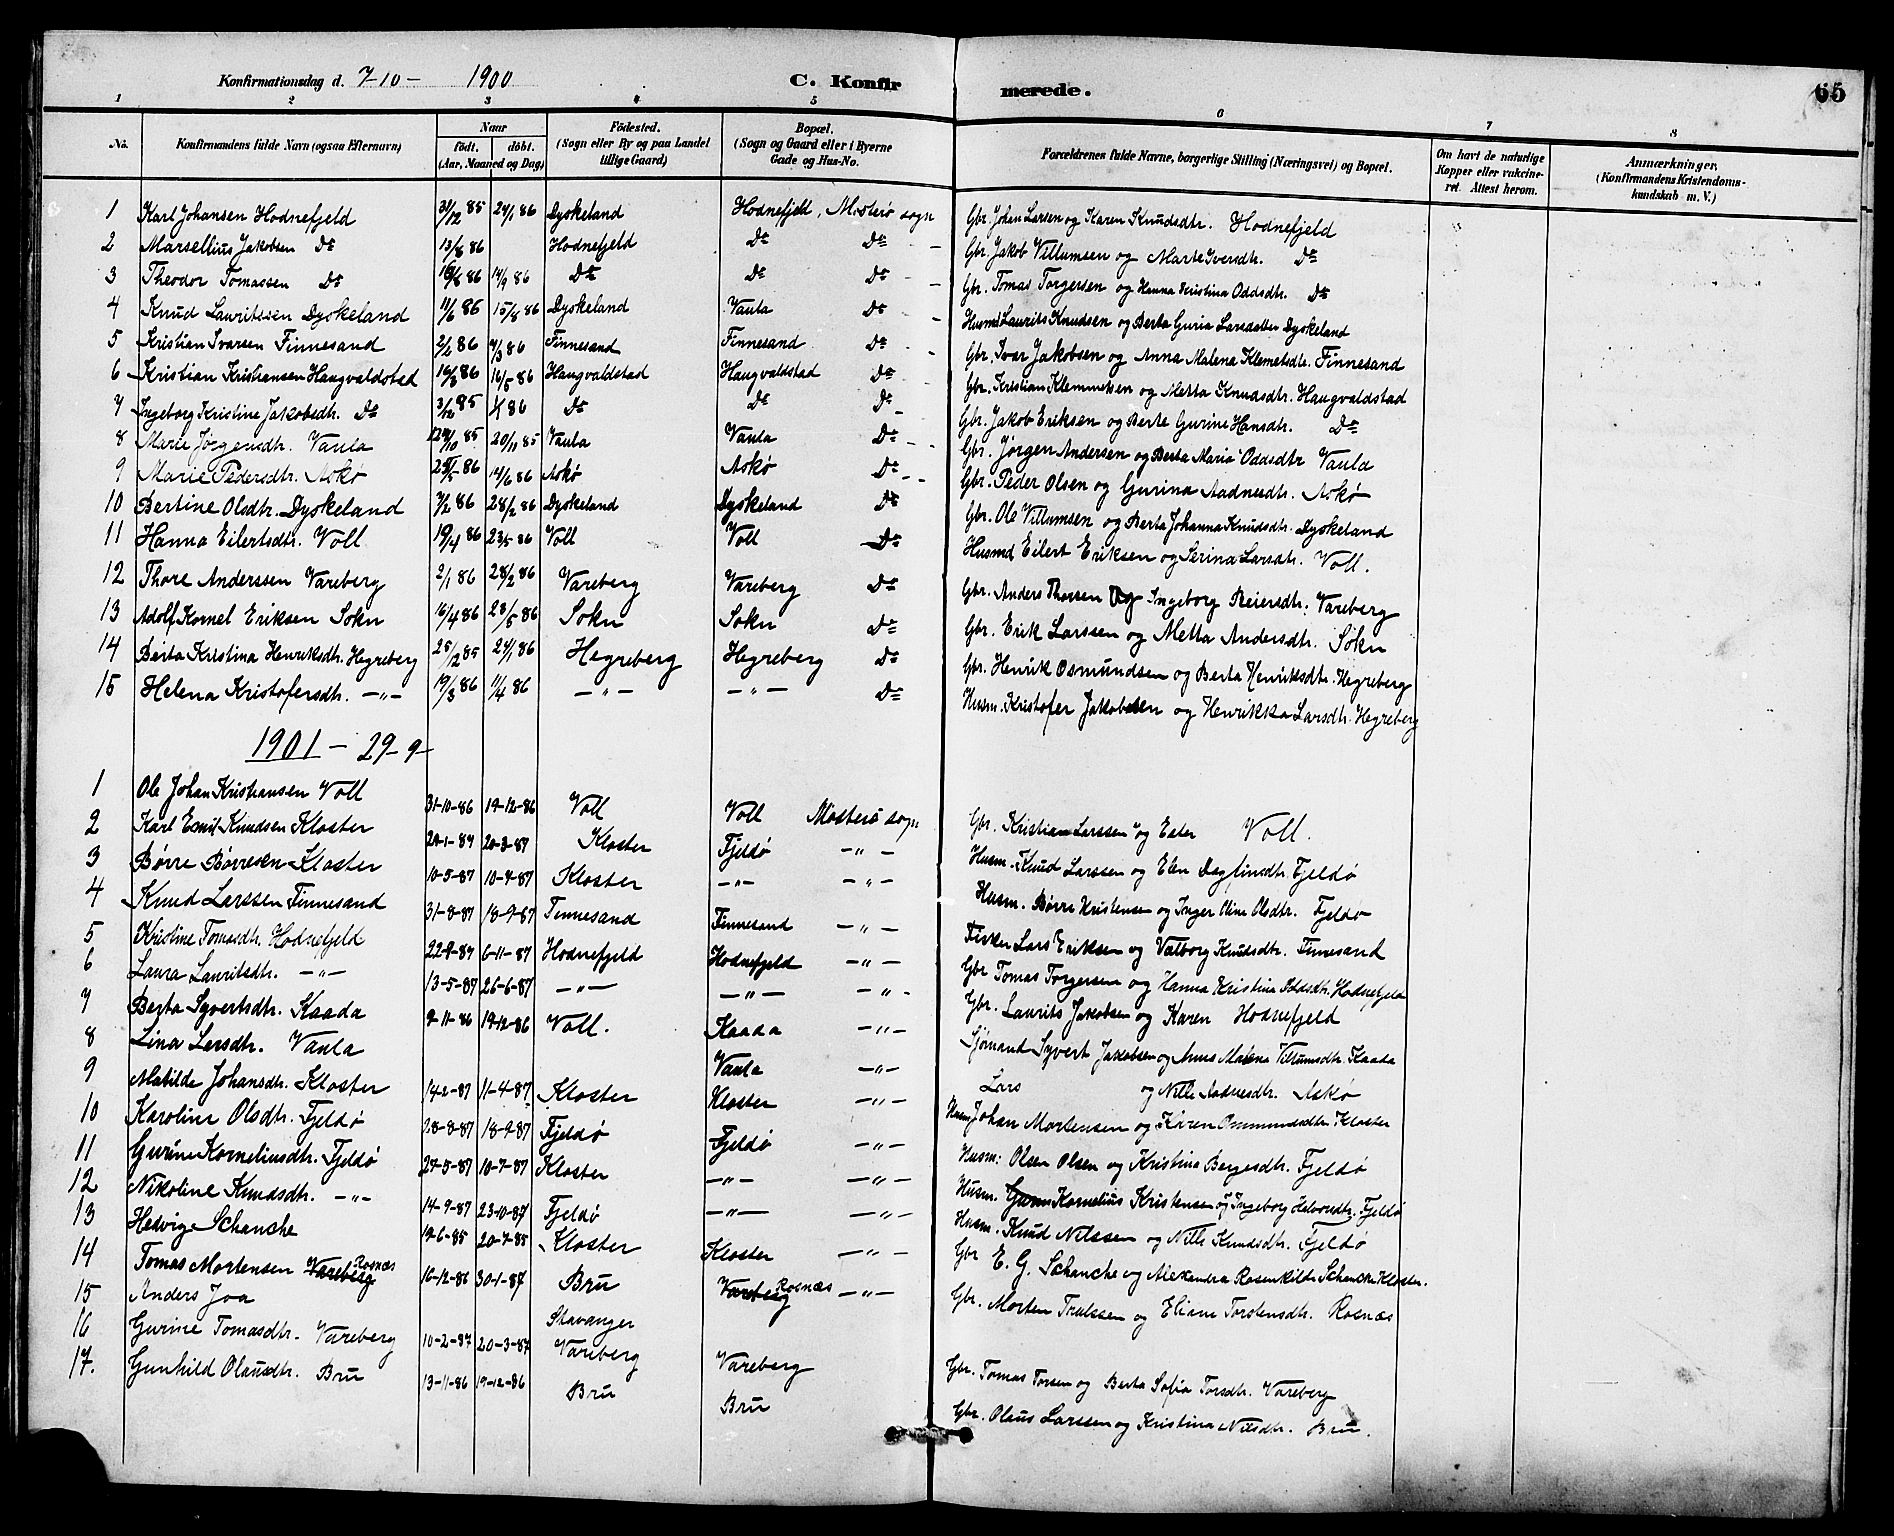 Konfirmationsdag d. 7-10- 1900 C. Konfirmerede. 65
1 2 3 4 5 6 7 8
No. Konfirmandens fulde Navn (ogsaa Efternavn) Naar født. døbt. (Aar, Maaned og Dag) Fødested. (Sogn eller By og paa Landet tillige Gaard) Bopæl. (Sogn og Gaard eller i Byerne Gade og Hus-No. Forældrenes fulde Navne, borgerlige Stilling (Næringsvei) og Bopæl. Om havt de naturlige Kopper eller vakcineret. Attest herom. Anmærkninger, (Konfirmandens Kristendomskundskab m. V.)
1 Karl Johansen Hodnefjeld 31/12 85 24/1 86 Dyskeland Hodnefjeld, Mosterø sogn Gbr. Johan Larsen og Karen Knudsdtr. Hodnefjeld
2 Marsellius Jakobsen Do 13/8 86 Hodnefjeld Do Do Gbr. Jakob Villumsen og Marte Iversdtr. Do
3 Theodor Tomassen Do 86 14/9 86 Do Do Do Gbr. Tomas Torgersen og Hanna Kristina Oddsdtr. Do
4 Knud Lauritssen Dyskeland 11/6 86 15/8 86 Dyskeland Vaula Do Husmd Laurits Knudsen og Berta Guria Larsdatter Dyskeland
5 Kristian Ivarsen Finnesand 2/2 86 4/3 86 Finnesand Finnesand Do Gbr. Ivar Jakobsen og Anna Malena Klemetsdtr. Finnesand
6 Kristian Kristiansen Haugvaldstad 16/3 86 16/5 86 Haugvaldstad Haugvaldstad Do Gbr. Kristian Klemmetsen og Metta Knudsdtr. Haugvaldstad
7 Ingeborg Kristine Jakobsdtr. Do 3/12 85 86 Do Do Do Gbr. Jakob Eriksen og Berte Gurine Hansdtr. Do
8 Marie Jørgensdtr. Vaula 85 20/11 85 Vaula Vaula Do Gbr. Jørgen Andersen og Berta Maria Oddsdtr Vaula
9 Marie Pedersdtr. Askø 25/5 86 14/6 86 Askø Askø Do Gbr. Peder Olsen og Gurina Aadnesdtr. Askø
10 Bertine Olsdtr. Dyskeland 7/2 86 28/2 86 Dyskeland Dyskeland Do Gbr. Ole Villumsen og Berta Johanna Knudsdtr. Dyskeland
11 Hanna Eilertsdtr. Voll 19/4 86 23/5 86 Voll Voll Do Husmd Eilert Eriksen og Serina Larsdtr. Voll.
12 Thore Anderssen Vareberg 2/1 86 28/2 86 Vareberg Vareberg Do Gbr. Anders Thorsen og Ingeborg Reiersdtr. Vareberg
13 Adolf Kornel Eriksen Sokn 16/4 86 23/5 86 Sokn Sokn Do Gbr. Erik Larssen og Metta Andersdtr. Sokn
14 Berta Kristina Henriksdtr. Hegreberg 25/12 85 24/1 86 Hegreberg Hegreberg Do Gbr. Henrik Osmundsen og Berta Henriksdtr. Hegreberg
15 Helena Kristofersdtr. — " — 19/3 86 11/4 86 — " — — " — Do Husm. Kristofer Jakobsen og Henrikka Larsdtr. Hegreberg
1901 – 29-9-
1 Ole Johan Kristiansen Voll 31-10-86 19-12-86 Voll Voll Mosterø sogn Gbr. Kristian Larssen og Ester Voll.
2 Karl Emil Knudsen Kloster 24-1-87 20-3-87 Kloster Fjeldø — " — Husm. Knud Larssen og Elen Dagfinsdtr. Fjeldø
3 Børre Børresen Kloster 10-5-87 10-7-87 Kloster — " — — " — Husm. Børre Kristensen og Inger Oline Olsdtr. Fjeldø
4 Knud Larssen Finnesand 31-8-87 18-9-87 Finnesand Finnesand — " — Fisker Lars Eriksen og Valborg Knudsdtr. Finnesand
5 Kristine Tomasdtr. Hodnefjeld 22-9-87 6-11-87 Hodnefjeld Hodnefjeld — " — Gbr Tomas Torgersen og Hanna Kristina Oddsdtr. Hodnefjeld
6 Laura Lauritsdtr. — " — 13-5-87 26-6-87 — " — — " — — " — Gbr. Laurits Jakobsen og Karen Hodnefjeld
7 Berta Syvertsdtr. Kaada 9-11-86 19-12-86 Voll. Kaada — " — Sjømand Syvert Jakobsen og Anna Malena Villumsdtr. Kaada
8 Lina Larsdtr. Vaula Vaula — " — Lars og Nille Aadnesdtr. Askø
9 Matilde Johansdtr. Kloster 14-2-87 11-4-87 Kloster Kloster — " — Husm Johan Mortensen og Karen Ommundsdtr. Kloster
10 Karoline Olsdtr. Fjeldø 28-8-87 18-9-87 Fjeldø Fjeldø — " — Husm: Olsen Olsen og Kristina Børgesdtr. Fjeldø
11 Gurine Korneliusdtr. Fjeldø 27-5-87 10-7-87 Kloster — " — — " — Husm. Kornelius Kristensen og Ingeborg Fjeldø
12 Nikoline Knudsdtr. — " — 14-9-87 23-10-87 Fjeldø — " — — " — Husm. Knud Nilssen og Nille Knudsdtr. Fjeldø
13 Hedvige Schanche 19-6-85 20-7-85 Kloster Kloster — " — Gbr E. G. Schanche og Alexandra Rosenkilde Schanche Kloster.
14 Tomas Mortensen Vareberg Rosnæs 16-12-86 30-1-87 Bru Vareberg Rosnæs — " — Gbr. Morten Trulssen og Eliane Torstensdtr. Rosnæs
15 Anders Joa Stavanger
16 Gurine Tomasdtr. Vareberg 10-2-87 20-3-87 Vareberg Vareberg Gbr. Tomas Torsen og Berta Sofia Torsdtr. Vareberg
17. Gunhild Olausdtr. Bru 13-11-86 19-12-86 Bru Bru Gbr. Olaus Larssen og Kristina Nilsdtr. Bru.